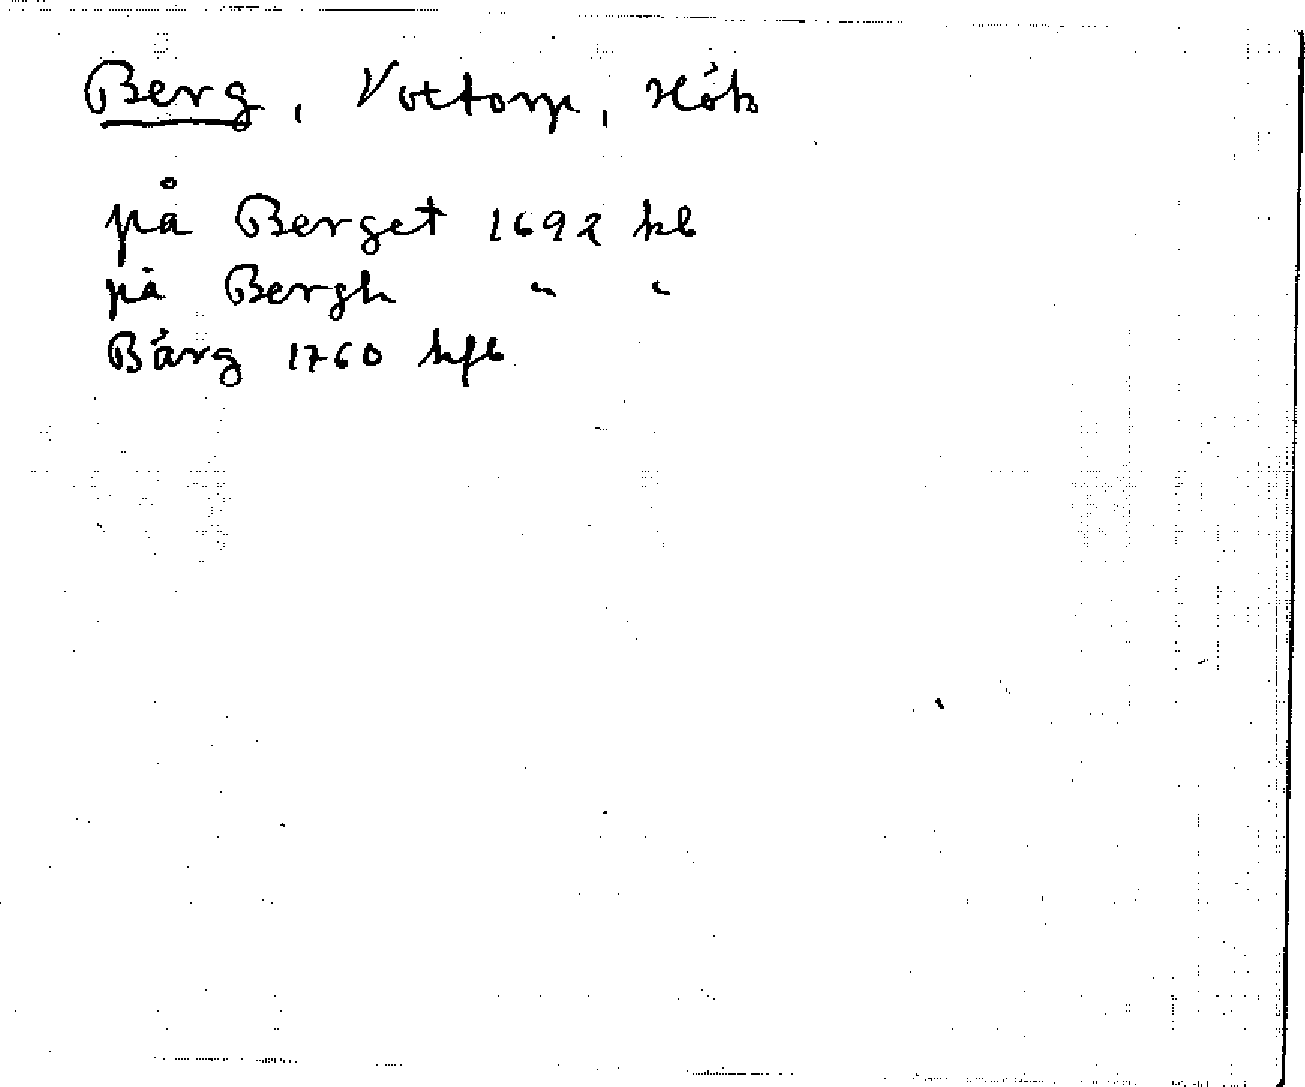 Berg, Voxtorp, Hök
på Berget 1692 kb
på Bergh " "
Bärg 1760 hfb